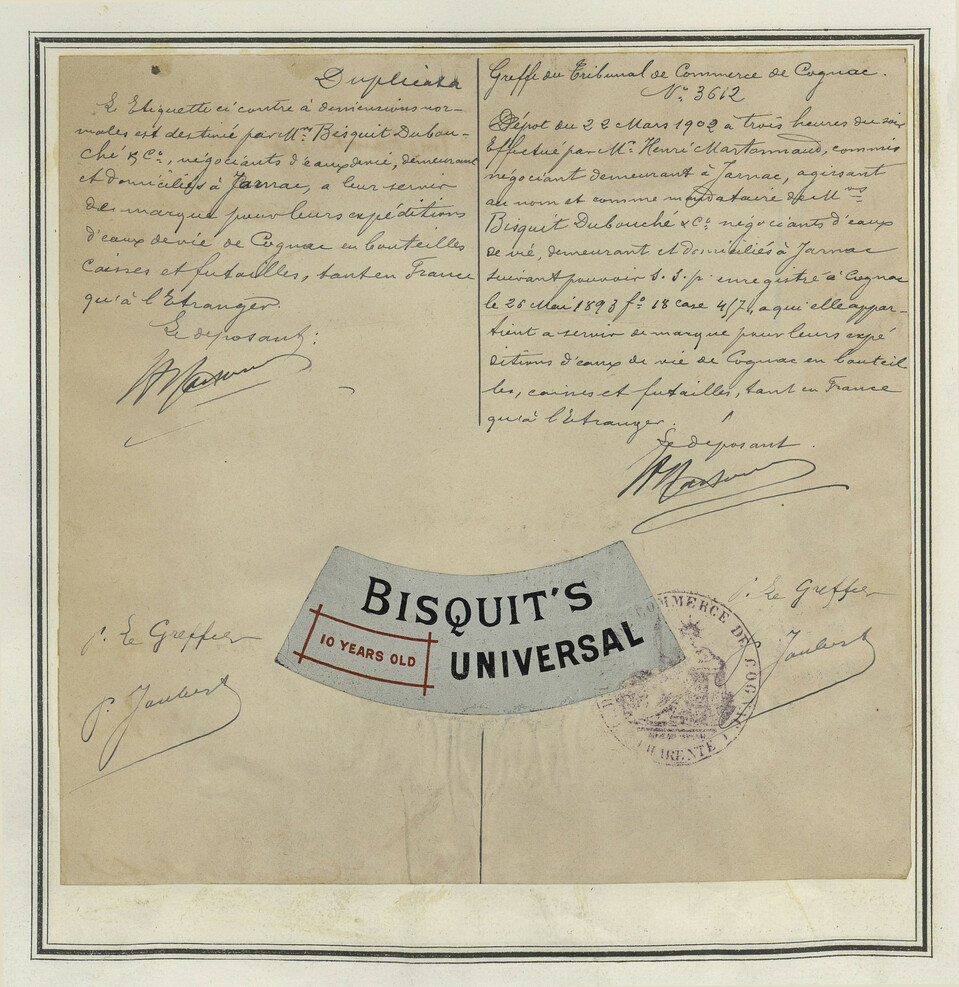 Duplicata
L'Etiquette ci contre à dimensions nor-
males est destiné par Mrs Bisquit Dubou-
ché & Co, négociants d'eaux de vie, demeurant
et domiciliés à Jarnac, a leur servir
de marque pour leurs expéditions
d'eaux de vie de Cognac en bouteilles
caisses et futailles, tant en France
qu'à l'Etranger.
Le deposant:
Greffe du Tribunal de Commerce de Cognac.
No 3612
Dépot du 22 Mars 1902 à trois heures du soir
Effectué par Mr. Henri, commis
négociant demeurant à Jarnac, agissant
au nom et comme mandataire de Mrs
Bisquit Dubouché & Co négociants d'eaux
de vie, demeurant et domiciliés à Jarnac
suivant pouvoir S. S. p. enregistré à Cognac
le 26 Mai 1893 fo 18 case 4/7, a qui elle appar-
tient a servir de marque pour leurs expé
ditions d'eaux de vie de Cognac en bouteil
les, caisses et futailles, tant en France
qu'à l'Etranger.
Le deposant.
BISQUIT'S
10 YEARS OLD
UNIVERSAL
p. Le Greffier
p. Joubert
p. Le Greffier
Joubert
COMMERCE DE COGNAC
CHARENTE